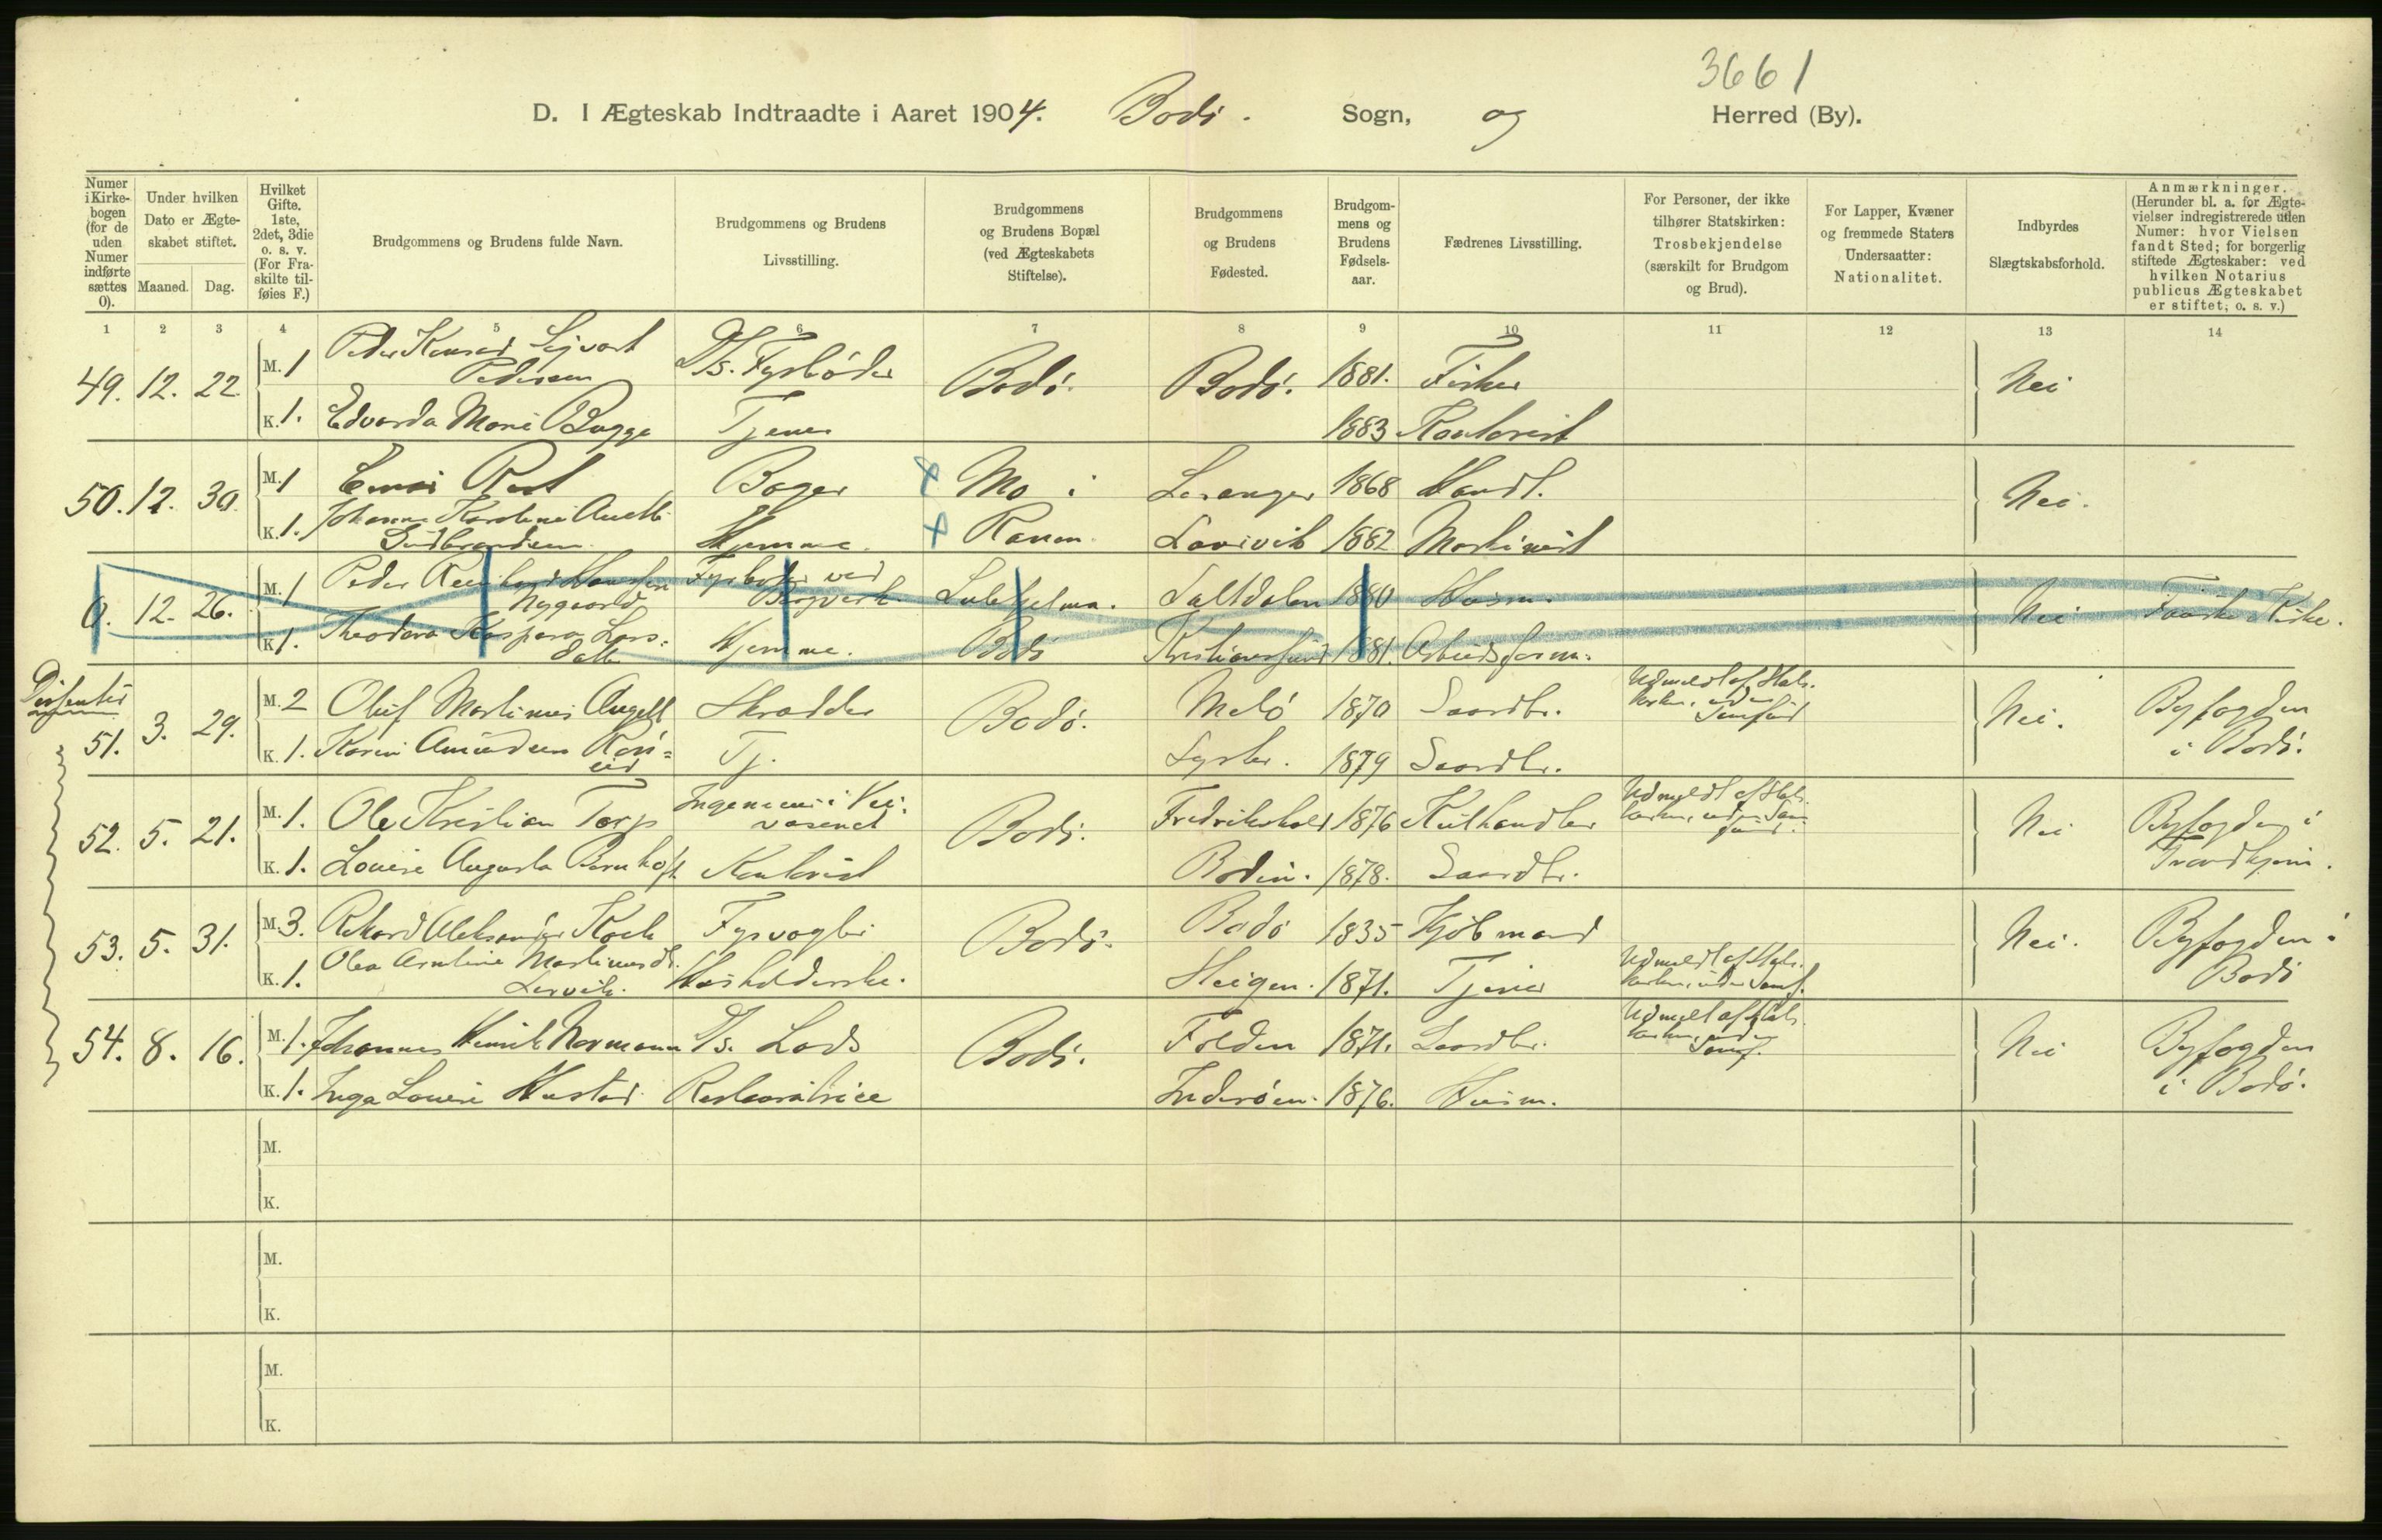 3661
D. I Ægteskab Indtraadte i Aaret 1904. Bodö. Sogn, og Herred (By).
Numer i Kirkebogen (for de uden Numer indførte sættes 0).
Under hvilken Dato er Ægteskabet stiftet.
Maaned. Dag.
Hvilket Gifte. 1ste, 2det, 3die o. s. v. (For Fraskilte tilføies F.)
Brudgommens og Brudens fulde Navn.
Brudgommens og Brudens Livsstilling.
Brudgommens og Brudens Bopæl (ved Ægteskabets Stiftelse).
Brudgommens og Brudens Fødested.
Brudgommens og Brudens Fødselsaar.
Fædrenes Livsstilling.
For Personer, der ikke tilhører Statskirken: Trosbekjendelse (særskilt for Brudgom og Brud).
For Lapper, Kvæner og fremmede Staters Undersaatter: Nationalitet.
Indbyrdes Slægtskabsforhold.
Anmærkninger. (Herunder bl. a. for Ægtevielser indregistrerede uden Numer: hvor Vielsen fandt Sted; for borgerlig stiftede Ægteskaber: ved hvilken Notarius publicus Ægteskabet er stiftet; o. s. v.)
1 2 3 4 5 6 7 8 9 10 11 12 13 14
49. 12. 22. M. 1 Peder Konrad Sejvart Pedersen D/s. Fyrböder Bodö. Bodö. 1881. Fisker Nei
K. 1. Edvarda Marie Bugge Tjener 1883 Kontorist
50. 12. 30. M. 1 Post Bager Mo i Levanger 1868 Handl. Nei.
K. 1. Johanna Karoline Gudbrandsen Hjemme. Ranen. Larvik 1882 Maskinist
0. 12. 26. M. 1 Peder Hansen Nygaard Fyrböder ved Bergverk. Saltdalen 1880 Husm. Nei Fauske Kirke.
K. 1. Theodora Kaspara Larsdatter Hjemme. Bodö Kristianssund 1881. Arbeidsform.
Dissenter
51. 3. 29. M. 2 Oluf Martinus Angell Skrædder Bodö. Melö 1870 Gaardbr. Udmeldt af Statskirken, uden Samfund Nei. Byfogden i Bodö.
K. 1. Karen Amundsen Tj. Lyster. 1879 Gaardbr.
52. 5. 21. M. 1. Ole Kristian Torp Ingeniör i Veivæsenet Bodö. Fredrikshald 1876 Kulhandler Udmeldt af Statskirken, uden Samfund. Nei Byfogden i Trondhjem.
K. 1. Louise Augusta Bernhoft Kontorist Bodin. 1878. Gaardbr.
53. 5. 31. M. 3. Rikard Aleksander Koch Fyrvogter Bodö. Bodö 1835 Kjöbmand Nei. Byfogden i Bodö
K. 1. Olea Martinusdt. Lervik. Husholderske. Steigen. 1871. Tjener Udmeldt af Statskirken, uden Samf.
54. 8. 16. M. 1. Johannes Henrik Normann D/s. Lods Bodö. Folden 1871. Gaardbr. Udmeldt af Statskirken, uden Samf. Nei Byfogden i Bodö.
K. 1. Inga Louise Hustad Restauratrice Inderöen. 1876. Husm.
M.
K.
M.
K.
M.
K.